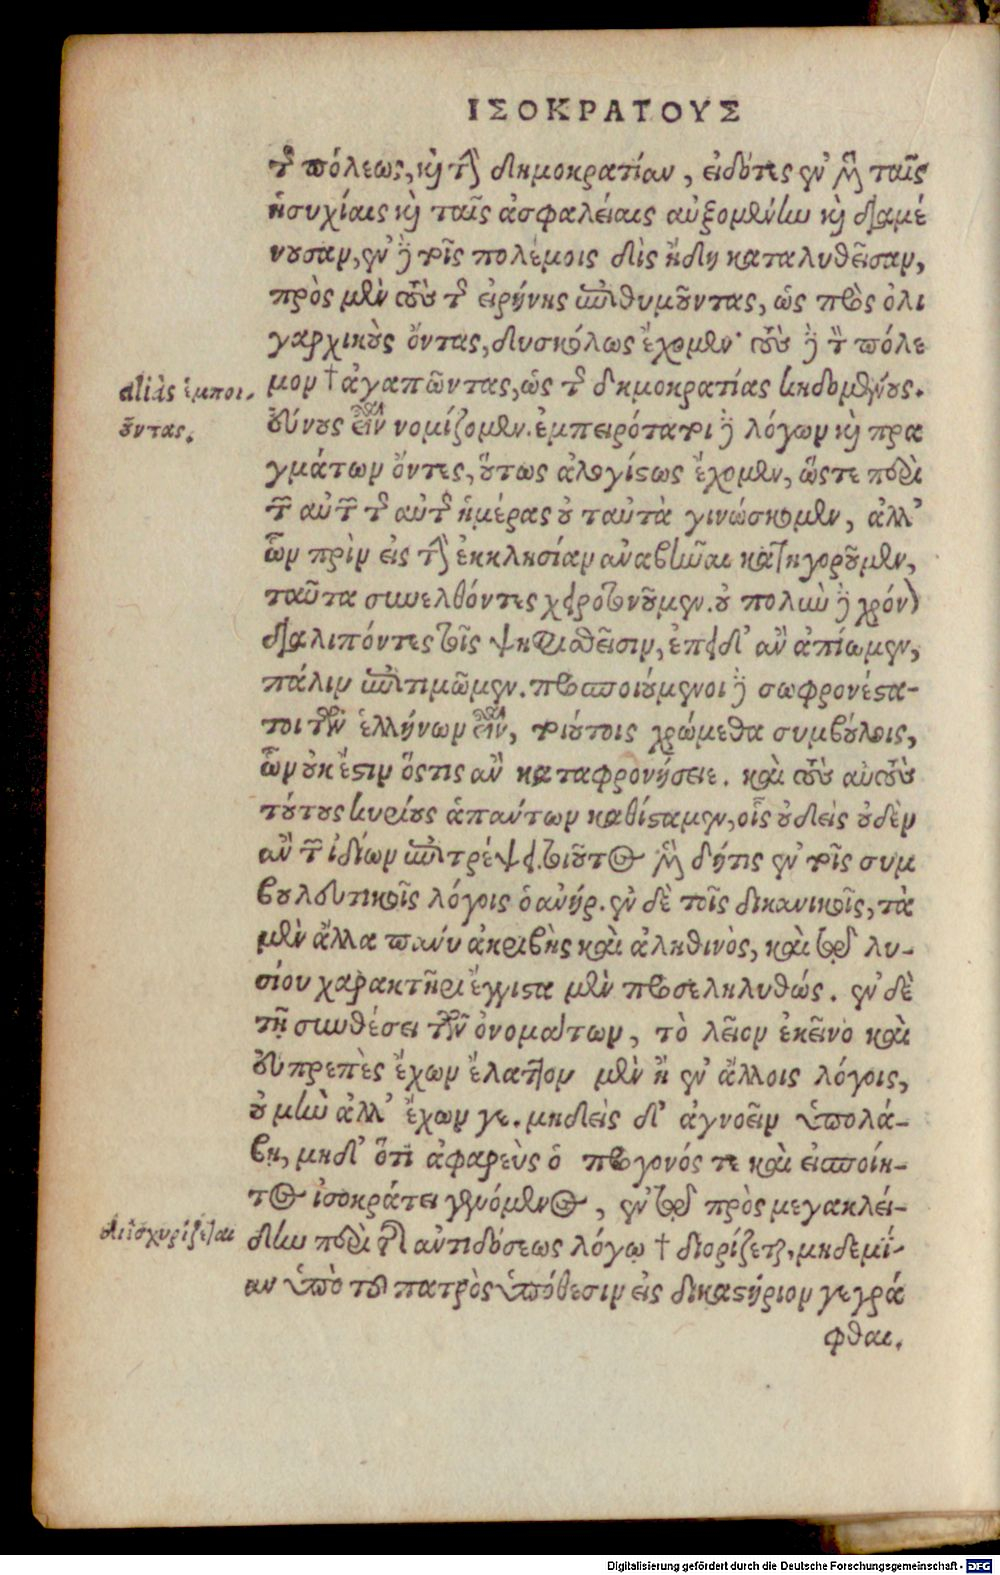 ΙΣΟΚΡΑΤΟΥΣ
τῆς πόλεως, καὶ τὴν δημοκρατίαν, εἰδότες ἐν μὲν ταῖς
ἡσυχίαις καὶ ταῖς ἀσφαλείαις αὐξομένην καὶ διαμέ
νουσαν, ἐν δὲ τοῖς πολέμοις δὶς ἤδη καταλυθεῖσαν,
πρὸς μὲν τοὺς τῆς εἰρήνης ἐπιθυμοῦντας, ὡς πρὸς ὀλι
γαρχικοὺς ὄντας, δυσκόλως ἔχομεν· τοὺς δὲ τὸν πόλε
μον † ἀγαπῶντας, ὡς τῆς δημοκρατίας κηδομένους.
aliàs ἐμποι.
οῦντας.
εὔνους εἶναι νομίζομεν. ἐμπειρότατοι δὲ λόγων καὶ πρα
γμάτων ὄντες, οὕτως ἀλογίστως ἔχομεν, ὥστε περὶ
τῶν αὐτῶν τῆς αὐτῆς ἡμέρας οὐ ταὐτὰ γινώσκομεν, ἀλλ'
ὧν πρὶν εἰς τὴν ἐκκλησίαν ἀναβῆναι κατηγοροῦμεν,
ταῦτα συνελθόντες χειροτονοῦμεν. οὐ πολὺν δὲ χρόνον
διαλιπόντες τοῖς ψηφισθεῖσιν, ἐπειδ' ἂν ἀπίωμεν,
πάλιν ἐπιτιμῶμεν. προσποιούμενοι δὲ σωφρονέστα-
τοι τῶν ἑλλήνων εἶναι, τοιούτοις χρώμεθα συμβούλοις,
ὧν οὐκ ἔστιν ὅστις ἂν καταφρονήσειε. καὶ τοὺς αὐτοὺς
τούτους κυρίους ἁπάντων καθίσταμεν, οἷς οὐδεὶς οὐδὲν
ἂν τῶν ἰδίων ἐπιτρέψει. τοιοῦτος μὲν δήτις ἐν τοῖς συμ
βουλευτικοῖς λόγοις ὁ ἀνήρ. ἐν δὲ τοῖς δικανικοῖς, τὰ
μὲν ἄλλα πάνυ ἀκριβὴς καὶ ἀληθινὸς, καὶ τῷ λυ-
σίου χαρακτῆρι ἔγγιστα μὲν προσεληλυθώς. ἐν δὲ
τῇ συνθέσει τῶν ὀνομάτων, τὸ λεῖον ἐκεῖνο καὶ
εὐπρεπὲς ἔχων ἔλαττον μὲν ἢ ἐν ἄλλοις λόγοις,
οὐ μὴν ἀλλ' ἔχων γε. μηδεὶς δ' ἀγνοεῖν ὑπολά-
βῃ, μηδ' ὅτι ἀφαρεὺς ὁ πρόγονός τε καὶ εἰσποίη-
τος ἰσοκράτει γενόμενος, ἐν τῷ πρὸς μεγακλεί-
διισχυρίζεται
δην περὶ τῆς ἀντιδόσεως λόγῳ † διορίζεται, μηδεμί-
αν ὑπὸ τοῦ πατρὸς ὑπόθεσιν εἰς δικαστήριον γεγρά
φθαι.
Digitalisierung gefördert durch die Deutsche Forschungsgemeinschaft - DFG